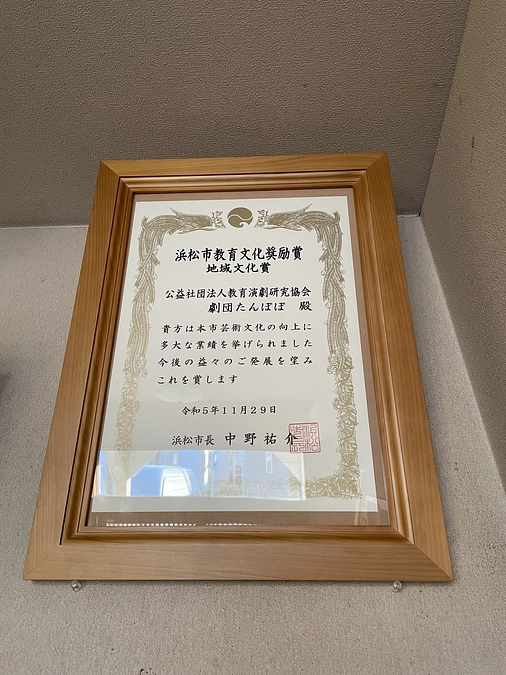 浜松市教育文化奨励賞
地域文化賞
公益社団法人教育演劇研究協会
劇団たんぽぽ 殿
貴方は本市芸術文化の向上に
多大な業績を挙げられました
今後の益々のご発展を望み
これを賞します
令和5年11月29日
浜松市長 中野祐介